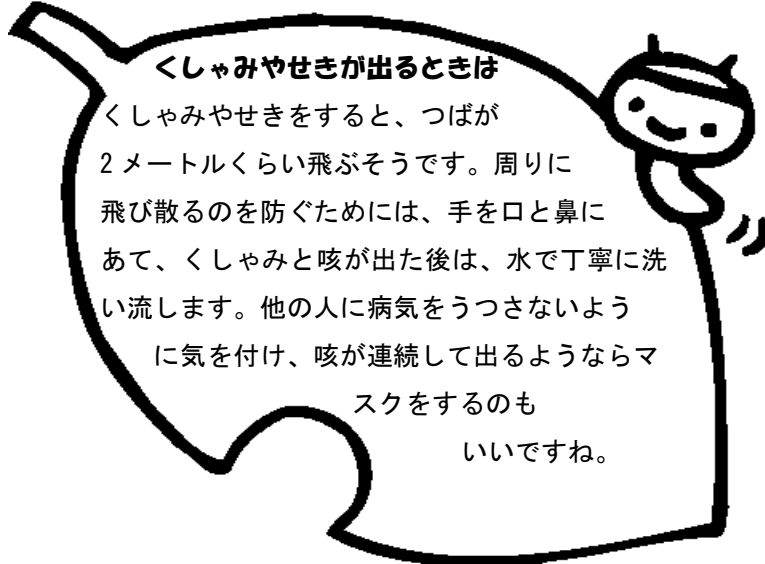 くしゃみやせきが出るときは
くしゃみやせきをすると、つばが
2メートルくらい飛ぶそうです。周りに
飛び散るのを防ぐためには、手を口と鼻に
あて、くしゃみと咳が出た後は、水で丁寧に洗
い流します。他の人に病気をうつさないよう
に気を付け、咳が連続して出るようならマ
スクをするのも
いいですね。